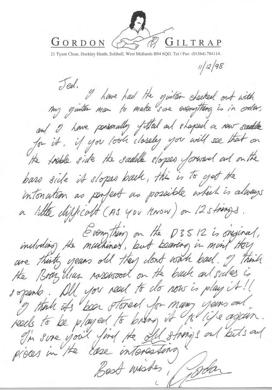 GORDON GILTRAP
11/12/98
Ted.
I have had the guitar checked out with
my guitar man to make sure everything is in order,
and I have personally fitted and shaped a new saddle
for it. if you look closely you will see that on
the treble side the saddle slopes forward and on the
bass side it slopes back, this is to get the
intonation as perfect as possible which is always
a little difficult (AS YOU KNOW) on 12 strings.
Everything on the D35 12 is original,
including the machines, but bearing in mind they
are thirty years old they dont work bad. I think
the Brazilian rosewood on the back and sides is
superb. All you need to do now is play it!!
I think its been stored for many years and
needs to be played to bring it to life again.
I'm sure you'll find the old strings and bits and
pieces in the case interesting!
Best wishes,
Gordon